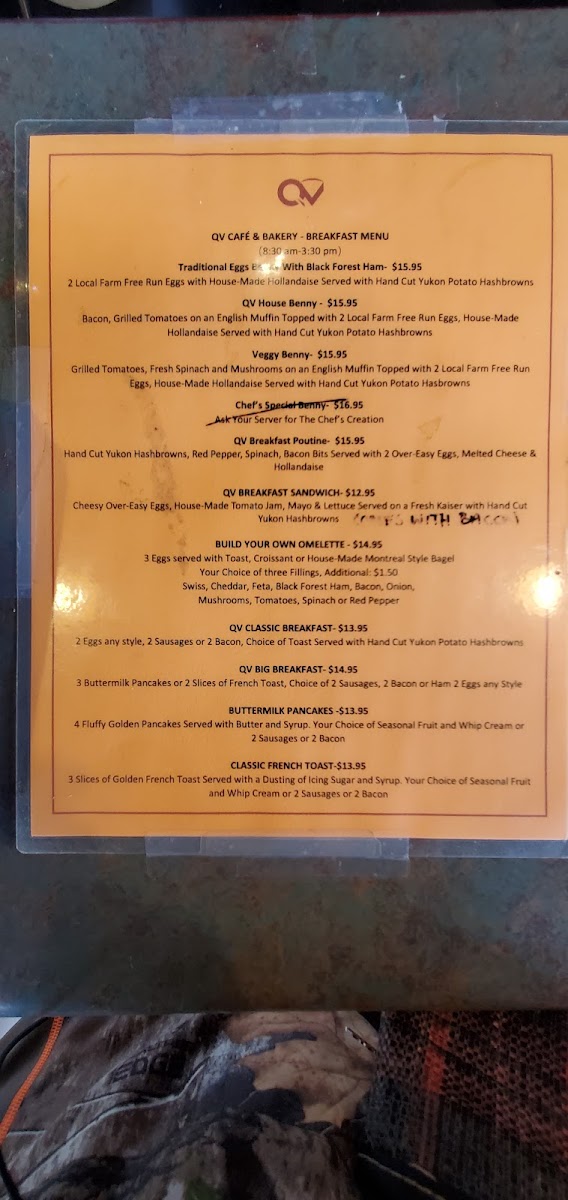 QV
QV CAFÉ & BAKERY - BREAKFAST MENU
(8:30 am-3:30 pm)
Traditional Eggs With Black Forest Ham- $15.95
2 Local Farm Free Run Eggs with House-Made Hollandaise Served with Hand Cut Yukon Potato Hashbrowns
QV House Benny - $15.95
Bacon, Grilled Tomatoes on an English Muffin Topped with 2 Local Farm Free Run Eggs, House-Made
Hollandaise Served with Hand Cut Yukon Potato Hashbrowns
Veggy Benny- $15.95
Grilled Tomatoes, Fresh Spinach and Mushrooms on an English Muffin Topped with 2 Local Farm Free Run
Eggs, House-Made Hollandaise Served with Hand Cut Yukon Potato Hasbrowns
Chef's Special Benny- $16.95
Ask Your Server for The Chef's Creation
QV Breakfast Poutine- $15.95
Hand Cut Yukon Hashbrowns, Red Pepper, Spinach, Bacon Bits Served with 2 Over-Easy Eggs, Melted Cheese &
Hollandaise
QV BREAKFAST SANDWICH- $12.95
Cheesy Over-Easy Eggs, House-Made Tomato Jam, Mayo & Lettuce Served on a Fresh Kaiser with Hand Cut
Yukon Hashbrowns COMES WITH BACON
BUILD YOUR OWN OMELETTE - $14.95
3 Eggs served with Toast, Croissant or House-Made Montreal Style Bagel
Your Choice of three Fillings, Additional: $1.50
Swiss, Cheddar, Feta, Black Forest Ham, Bacon, Onion,
Mushrooms, Tomatoes, Spinach or Red Pepper
QV CLASSIC BREAKFAST- $13.95
2 Eggs any style, 2 Sausages or 2 Bacon, Choice of Toast Served with Hand Cut Yukon Potato Hashbrowns
QV BIG BREAKFAST- $14.95
3 Buttermilk Pancakes or 2 Slices of French Toast, Choice of 2 Sausages, 2 Bacon or Ham 2 Eggs any Style
BUTTERMILK PANCAKES -$13.95
4 Fluffy Golden Pancakes Served with Butter and Syrup. Your Choice of Seasonal Fruit and Whip Cream or
2 Sausages or 2 Bacon
CLASSIC FRENCH TOAST-$13.95
3 Slices of Golden French Toast Served with a Dusting of Icing Sugar and Syrup. Your Choice of Seasonal Fruit
and Whip Cream or 2 Sausages or 2 Bacon